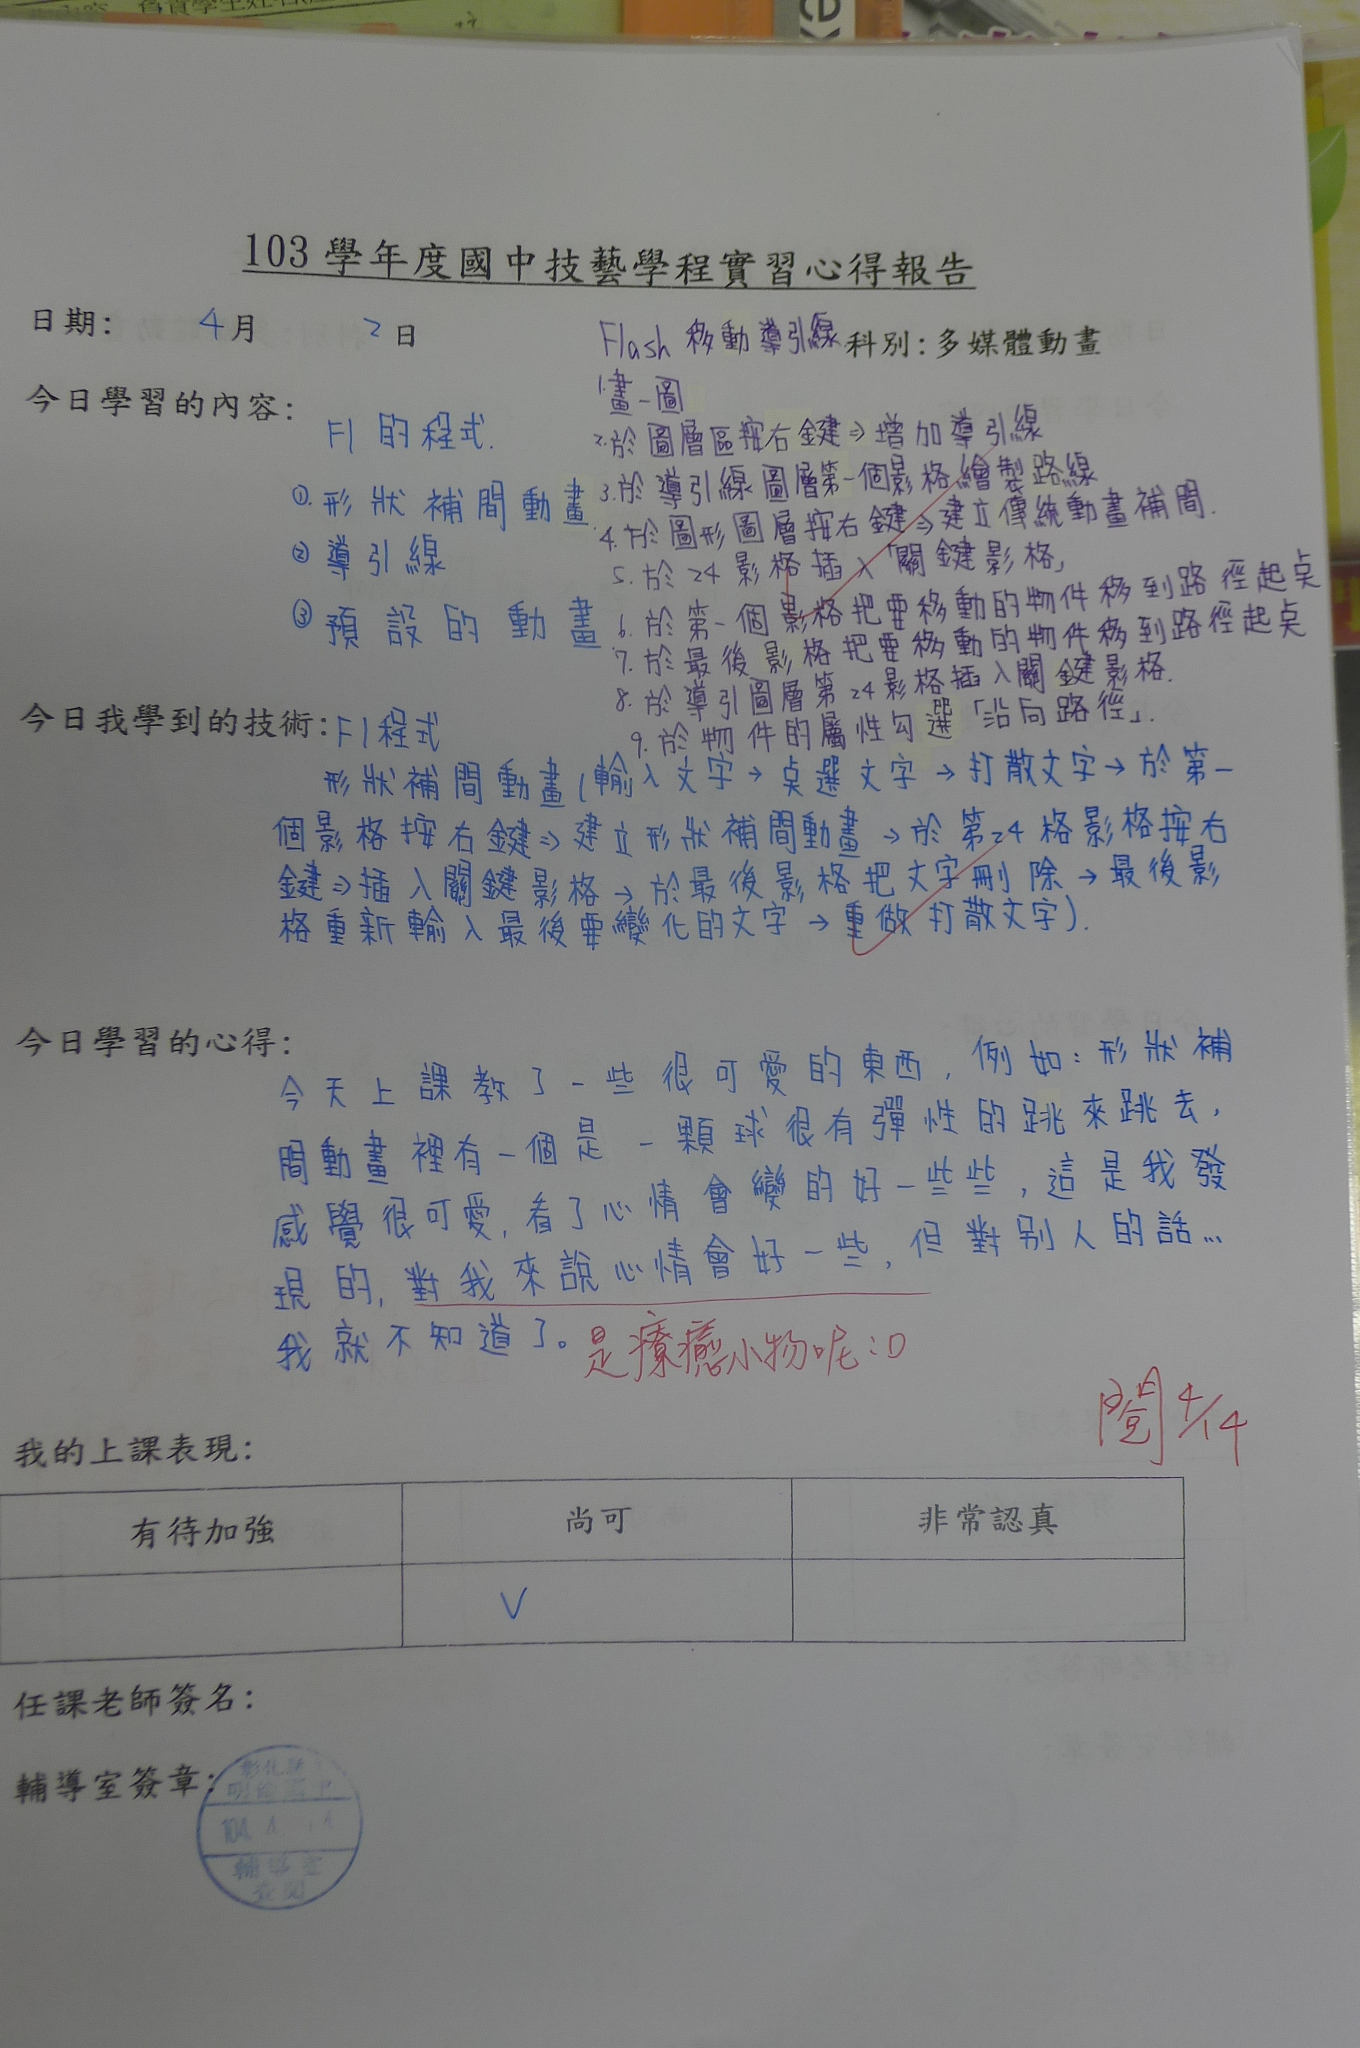 103學年度國中技藝學程實習心得報告
日期: 4月 2日
科別:多媒體動畫
Flash 移動導引線
1.畫一圖
2.於圖層區按右鍵⇒增加導引線
3.於導引線圖層第一個影格繪製路線
4.於圖形圖層按右鍵⇒建立傳統動畫補間.
5.於24影格插入「關鍵影格」
6.於第一個影格把要移動的物件移到路徑起点
7.於最後影格把要移動的物件移到路徑起点
8.於導引圖層第24影格插入關鍵影格.
9.於物件的屬性勾選「沿向路徑」.
今日學習的內容:
Fl 的程式.
①形狀補間動畫
②導引線
③預設的動畫
今日我學到的技術:Fl程式
形狀補間動畫(輸入文字→点選文字→打散文字→於第一
個影格按右鍵⇒建立形狀補間動畫→於第24格影格按右
鍵⇒插入關鍵影格→於最後影格把文字刪除→最後影
格重新輸入最後要變化的文字→重做打散文字).
今日學習的心得:
今天上課教了一些很可愛的東西,例如:形狀補
間動畫裡有一個是一顆球很有彈性的跳來跳去,
感覺很可愛,看了心情會變的好一些些,這是我發
現的,對我來說心情會好一些,但對別人的話...
我就不知道了。是療癒小物呢:D
閱 4/14
我的上課表現:
有待加強 尚可 非常認真
V
任課老師簽名:
輔導室簽章:
彰化縣
明倫國中
輔導室
查閱